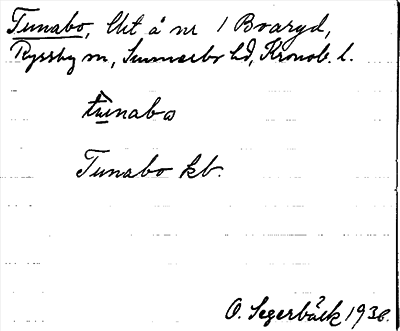 Tunabo, lht å nr 1 Boaryd,
Ryssby sn, Sunnerbo hd, Kronob. l.
tu̲nabo
Tunabo kb.
O. Segerbäck 1936.